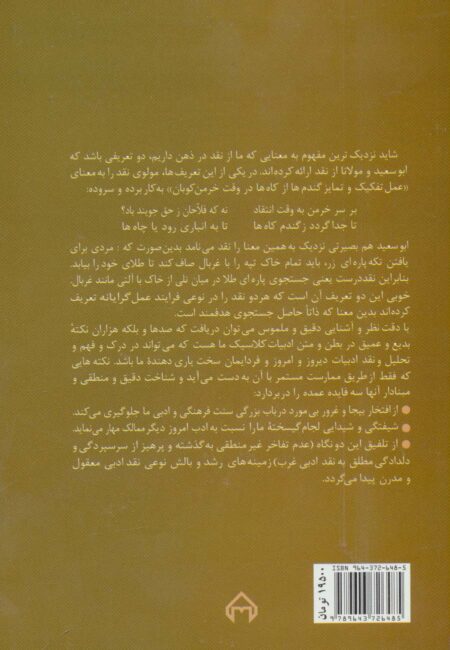 شاید نزدیک ترین مفهوم به معنایی که ما از نقد در ذهن داریم، دو تعریفی باشد که
ابوسعید و مولانا از نقد ارائه کرده‌اند. در یکی از این تعریف‌ها، مولوی نقد را به معنای
«عمل تفکیک و تمایز گندم‌ها از کاه‌ها در وقت خرمن‌کوبان» به‌کار برده و سروده:
بر سر خرمن به وقت انتقاد نه که فلاحان ز حق جویند باد؟
تا جدا گردد ز گندم کاه‌ها تا به انباری رود یا چاه‌ها
ابوسعید هم بصیرتی نزدیک به همین معنا را نقد می‌نامد بدین‌صورت که: مردی برای
یافتن تکه‌پاره‌ای زر، باید تمام خاک تپه را با غربال صاف کند تا طلای خود را بیابد.
بنابراین نقددرست یعنی جستجوی پاره‌ای طلا در میان تلی از خاک با آلتی مانند غربال.
خوبی این دو تعریف آن است که هر دو نقد را در نوعی فرایند عمل‌گرایانه تعریف
کرده‌اند بدین معنا که ذاتاً حاصل جستجوی هدفمند است.
با دقت نظر و آشنایی دقیق و ملموس می‌توان دریافت که صدها و بلکه هزاران نکتهٔ
بدیع و عمیق در بطن و متن ادبیات کلاسیک ما هست که می‌تواند در درک و فهم و
تحلیل و نقد ادبیات دیروز و امروز و فردایمان سخت یاری دهندهٔ ما باشد. نکته‌هایی
که فقط از طریق ممارست مستمر با آن به دست می‌آید و شناخت دقیق و منطقی و
مبنادار آنها سه فایده عمده را دربردارد:
از افتخار بیجا و غرور بی‌مورد درباب بزرگی سنت فرهنگی و ادبی ما جلوگیری می‌کند.
شیفتگی و شیدایی لجام‌گسیختهٔ ما را نسبت به ادب امروز دیگر ممالک مهار می‌نماید.
از تلفیق این دو نگاه (عدم تفاخر غیر منطقی به گذشته و پرهیز از سرسپردگی و
دلدادگی مطلق به نقد ادبی غرب) زمینه‌های رشد و بالش نوعی نقد ادبی معقول و
مدرن پیدا می‌گردد.
ISBN 964-372-648-5
9 789643 726485
۱۹۵۰۰ تومان